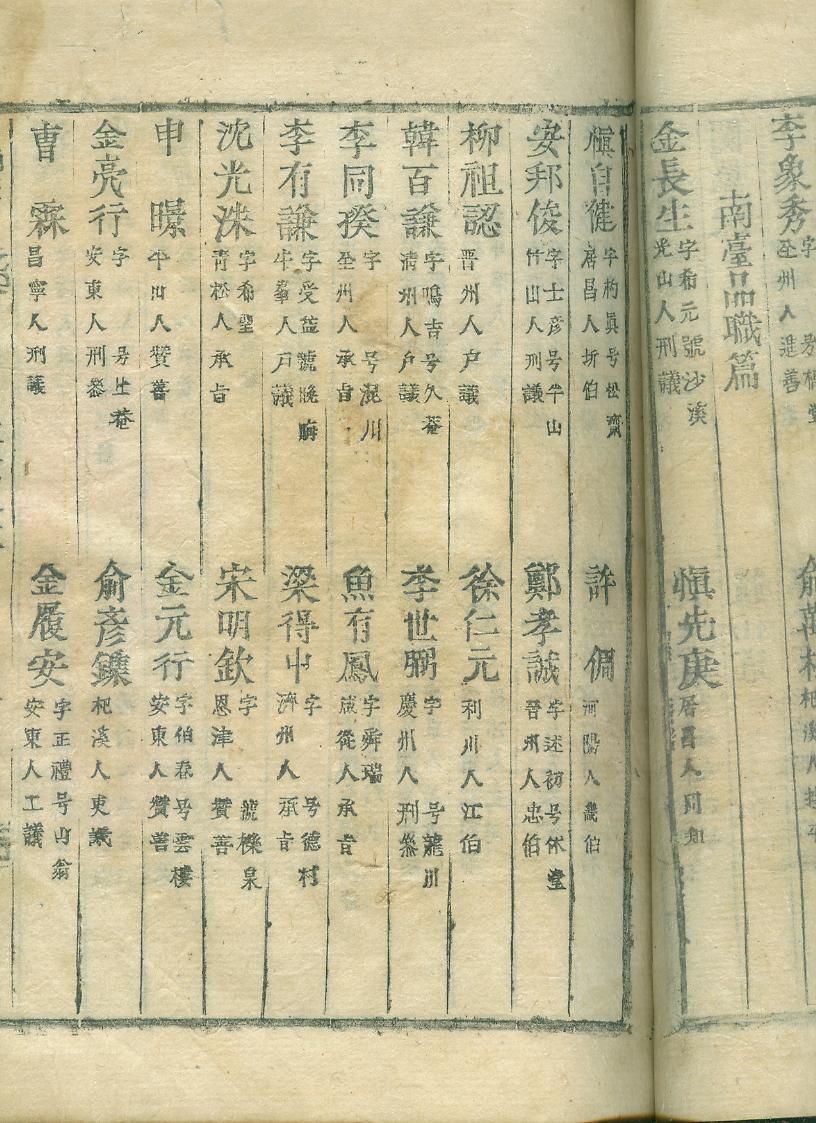 李象秀 字 号
全州人進善
南臺品職篇
金長生 字希元號沙溪
光山人刑議
愼先庚 居昌人同知
愼自健 字杓眞号松齋
居昌人圻伯
許倜 河陽人畿伯
安邦俊 字士彦号牛山
竹山人刑議
鄭孝誠 字述初号休堂
晉州人忠伯
柳祖認 晋州人户議
徐仁元 利川人江伯
韓百謙 字鳴吉号久菴
清州人户議
李世弼 字 号龍川
慶州人刑叅
李同揆 字 号混川
全州人承旨
魚有鳳 字舜瑞
咸從人承旨
李有謙 字受益號晚晦
牛峯人户議
梁得中 字 号德村
濟州人承旨
沈光洙 字希聖
青松人承旨
宋明欽 字 號櫟泉
恩津人贊善
申暻 平山人贊善
金元行 字伯春号雲樓
安東人贊善
金亮行 字 号止菴
安東人刑叅
俞彦鏶 杞溪人吏議
曹霖 昌寧人刑議
金履安 字正禮号山翁
安東人工議